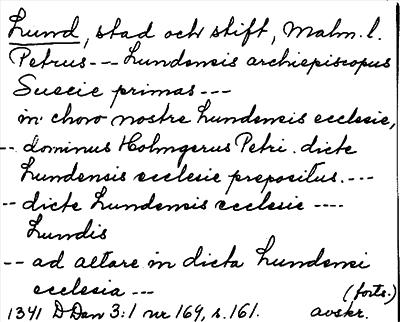 Lund, stad och stift, Malm. l.
Petrus -- Lundensis archiepiscopus
Suecie primas ---
in choro nostre Lundensis ecclesie,
-- dominus Holmgerus Petri. dicte
Lundensis ecclesie prepositus. ---
-- dicte Lundensis ecclesie ----
Lundis
-- ad altare in dicta Lundensi
ecclesia --- (forts.)
1341 DDan 3:1 nr 169, s. 161. avskr.